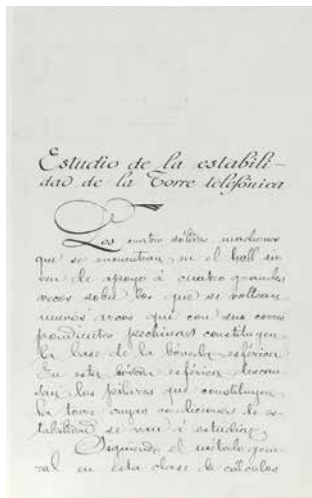 Estudio de la estabili-
dad de la Torre telefónica
Los cuatro sólidos machones
que se encuentran en el hall sir
ven de apoyo á cuatro grandes
arcos sobre los que se voltean
nuevos arcos que con sus corres
pondientes pechinas constituyen
la base de la bóveda esférica
En esta bóveda esférica descan
san los pilares que constituyen
la torre cuyas condiciones de es-
tabilidad se van á estudiar.
Siguiendo el método gene
ral en esta clase de cálculos